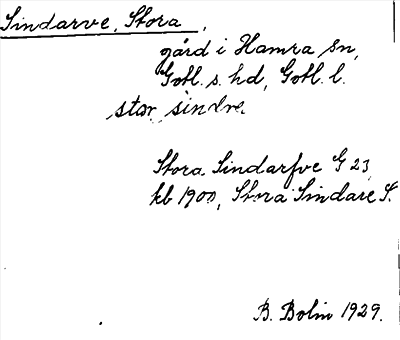 Sindarve, Stora,
gård i Hamra sn,
Gotl. s. hd, Gotl. l.
stor sindre
Stora Sindarfve G 23,
kb 1900, Stora Sindare S.
B. Bolin 1929.